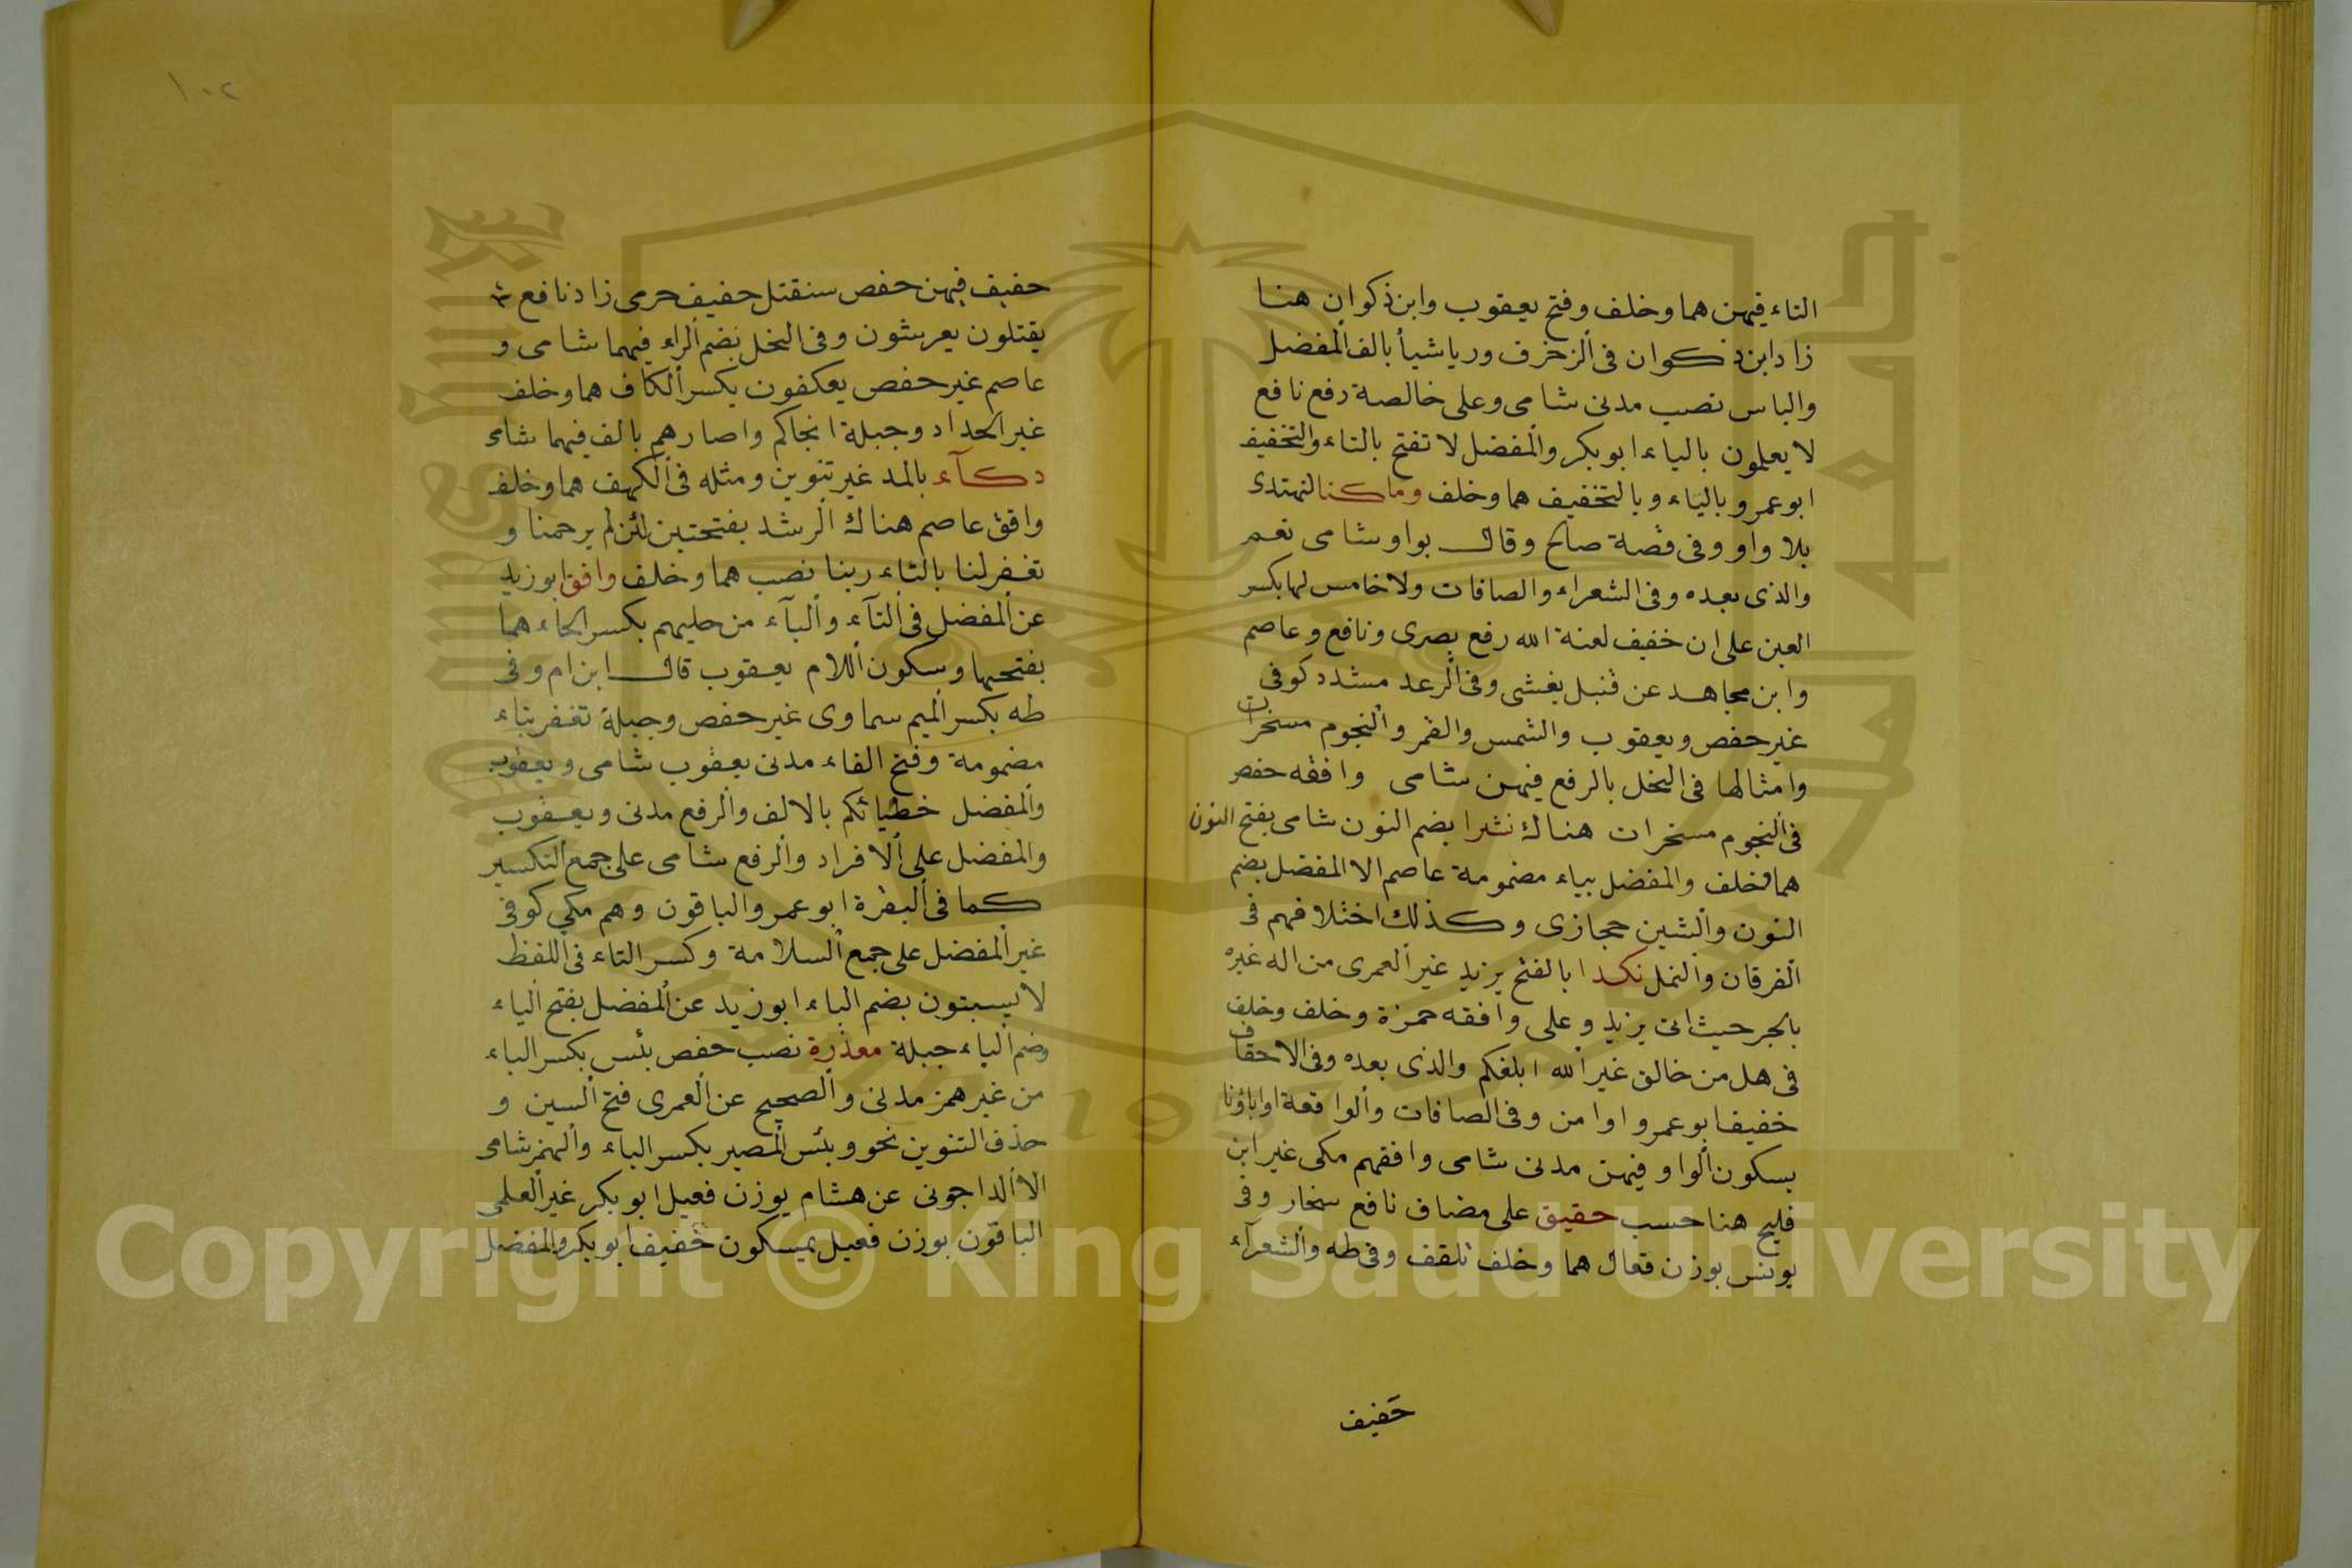 التاء فيهن هما وخلف وفتح يعقوب وابن ذكوان هنا
زاد ابن ذكوان فى الزخرف ورياشيأ بالف المفضل
والباس نصب مدنى شامى وعلى خالصة رفع نافع
لا يعلمون بالياء ابو بكر والمفضل لا تفتح بالتاء والتخفيف
ابو عمرو بالياء وبالتخفيف هما وخلف وما كنا لنهتدى
بلا واو وفى قصة صالح وقال بواو شامى نعم
والذى بعده وفى الشعراء والصافات ولا خامس لها بكسر
العين على ان خفيف لعنة الله رفع بصرى ونافع وعاصم
وابن مجاهد عن قنبل يغشى وفى الرعد مشدد كوفى
غير حفص ويعقوب والشمس والقمر والنجوم مسخرات
وامثالها فى النخل بالرفع فيهن شامى وافقه حفص
فى النجوم مسخرات هناك نشرا بضم النون شامى بفتح النون
هما وخلف والمفضل بياء مضمومة عاصم الا المفضل بضم
النون والشين حجازى وكذلك اختلافهم فى
الفرقان والنمل نكدا بالفتح يزيد غير العمرى من اله غيره
بالجر حيث اتى يزيد وعلى وافقه حمزة وخلف وخلف
فى هل من خالق غير الله ابلغكم والذى بعده وفى الاحقاف
خفيف ابو عمرو اوا من وفى الصافات والواقعة اواباؤنا
بسكون الواو فيهن مدنى شامى وافقهم مكى غير ابن
فليح هنا حسب حقيق على مضاف نافع سحار وفى
يونس بوزن فعال هما وخلف تلقف وفى طه والشعرآء
خفيف
١٠٢
خفيف فيهن حفص سنقتل خفيف حرمى زاد نافع
يقتلون يعرشون وفى النخل بضم الراء فيهما شامى و
عاصم غير حفص يعكفون بكسر الكاف هما وخلف
غير الحداد وجبلة انجاكم واصارهم بالف فيهما شامى
دكآء بالمد غير تنوين ومثله فى الكهف هما وخلف
وافق عاصم هناك الرشد بفتحتين لئن لم يرحمنا و
تغفر لنا بالتاء ربنا نصب هما وخلف وافق ابو زيد
عن المفضل فى التآء والبآء من حليهم بكسر الحاء هما
بفتحها وسكون اللام يعقوب قال ابن ام وفى
طه بكسر الميم سماوى غير حفص وجبلة تغفر بتاء
مضمومة وفتح الفاء مدنى يعقوب شامى ويعقوب
والمفضل خطيائكم بالالف والرفع مدنى ويعقوب
والمفضل على الافراد والرفع شامى على جمع التكسير
كما فى البقرة ابو عمرو الباقون وهم مكى كوفى
غير المفضل على جمع السلامة وكسر التاء فى اللفظ
لا يسبتون بضم الباء ابو زيد عن المفضل بفتح الياء
وضم الياء جبلة معذرة نصب حفص بئس بكسر الباء
من غير همز مدنى والصحيح عن العمرى فتح السين و
حذف التنوين نحو وبئس المصير بكسر الباء والهمز شامى
الا الداجونى عن هشام بوزن فعيل ابو بكر غير العلمى
الباقون بوزن فعيل يمسكون خفيف ابو بكر والمفضل
Copyright © King Saud University
1957